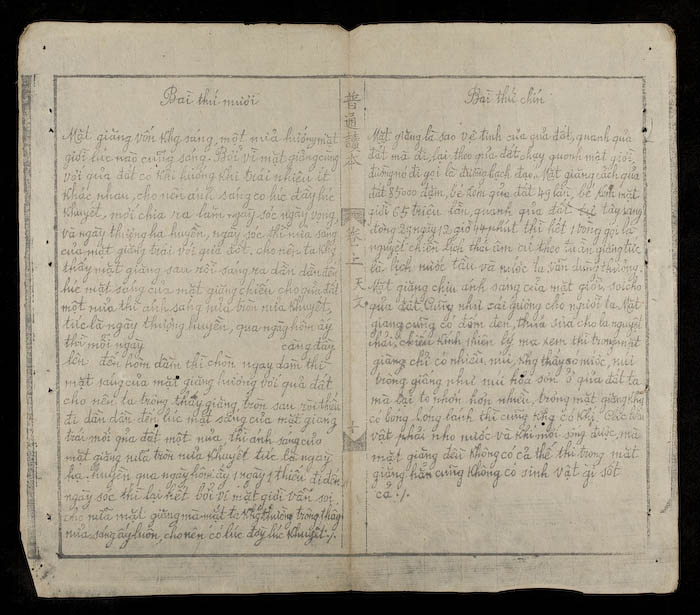 Bài thứ chín
Mặt giăng là sao vệ tinh của quả đất, quanh quả
đất mà đi, lại theo quả đất chạy quanh mặt giời
đường nó đi gọi là đường bạch đạo, Mặt giăng cách quả
đất 85000 dặm, bé kém quả đất 49 lần, bé kém mặt
giời 65 triệu lần, quanh quả đất tây sang
đông 29 ngày, 12 giờ 44 phút thì hết 1 vòng gọi là
nguyệt chiền lịch thái âm cứ theo tuần giăng tức
là lịch nước tầu và nước ta vẫn dùng thường.
Mặt giăng chịu ánh sáng của mặt giời, soi cho
quả đất, Cũng như cái gương cho người ta, Mặt
giăng cũng có đốm đen, thuở xưa cho là nguyệt
phải, chiếu kính thiên lý mà xem thì trong mặt
giăng chỉ có nhiều núi, Khg thấy có nước, núi
trong giăng như núi hỏa sơn ở quả đất ta
mà lại to nhớn hơn nhiều, trong mặt giăng không
có bóng lóng lánh thì cũng khg có khí, Các
vật phải nhờ nước và khí mới sống được, mà
mặt giăng đều không có cả thế thì trong mặt
giăng hẳn cũng không có sinh vật gì sốt
cả ./.
普通讀本
卷上
天文
十
Bài thứ mười
Mặt giăng vốn khg sáng, một nửa hướng mặt
giời lúc nào cũng sáng. Bởi vì mặt giăng cùng
với quả đất có khi hướng khi trái nhiều ít
khác nhau, cho nên ánh sáng có lúc đầy lúc
khuyết, mới chia ra làm ngày sóc ngày vọng,
và ngày thượng hạ huyền, ngày sóc thì nửa sáng
của mặt giăng trái với quả đất, cho nên ta khg
thấy mặt giăng sau rồi sáng ra dần dần đến
lúc mặt sáng của mặt giăng chiếu cho quả đất
một nửa thì ánh sáng nửa tròn nửa khuyết,
tức là ngày thượng huyền, qua ngày hôm ấy
thì mỗi ngày càng đầy
lên đến hôm dằm thì tròn ngày dằm thì
mặt sáng của mặt giăng hướng với quả đất
cho nên ta trông thấy giăng tròn sau rồi thiếu
đi dần dần đến lúc mặt sáng của mặt giăng
trái mới quả đất một nửa thì ánh sáng của
mặt giăng nửa tròn nửa khuyết tức là ngày
hạ huyền qua ngày hôm ấy 1 ngày 1 thiếu đi đến
ngày sóc thì lại hết bởi vì mặt giời vẫn soi
cho nửa mặt giăng mà mặt ta khg thường trông thấy
nửa sáng ấy luôn, cho nên có lúc đầy lúc khuyết ./.